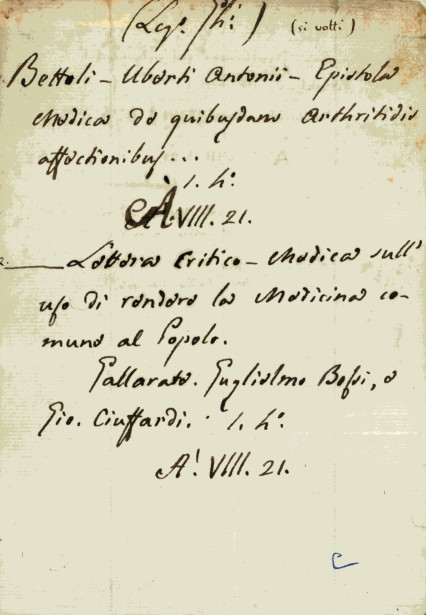 (Leg. Th.) (si volti)
Bettoli - Uberti Antonii - Epistola
Medica de quibusdam Arthritidis
affectionibus...
1. h°.
A. VIII. 21.
2. ——— Lettera Critico-Medica sull'
uso di rendere la Medicina co-
mune al Popolo.
Gallarate. Guglielmo Bossi, e
Gio. Ciuffardi. 1. h°.
A! VIII. 21.
C